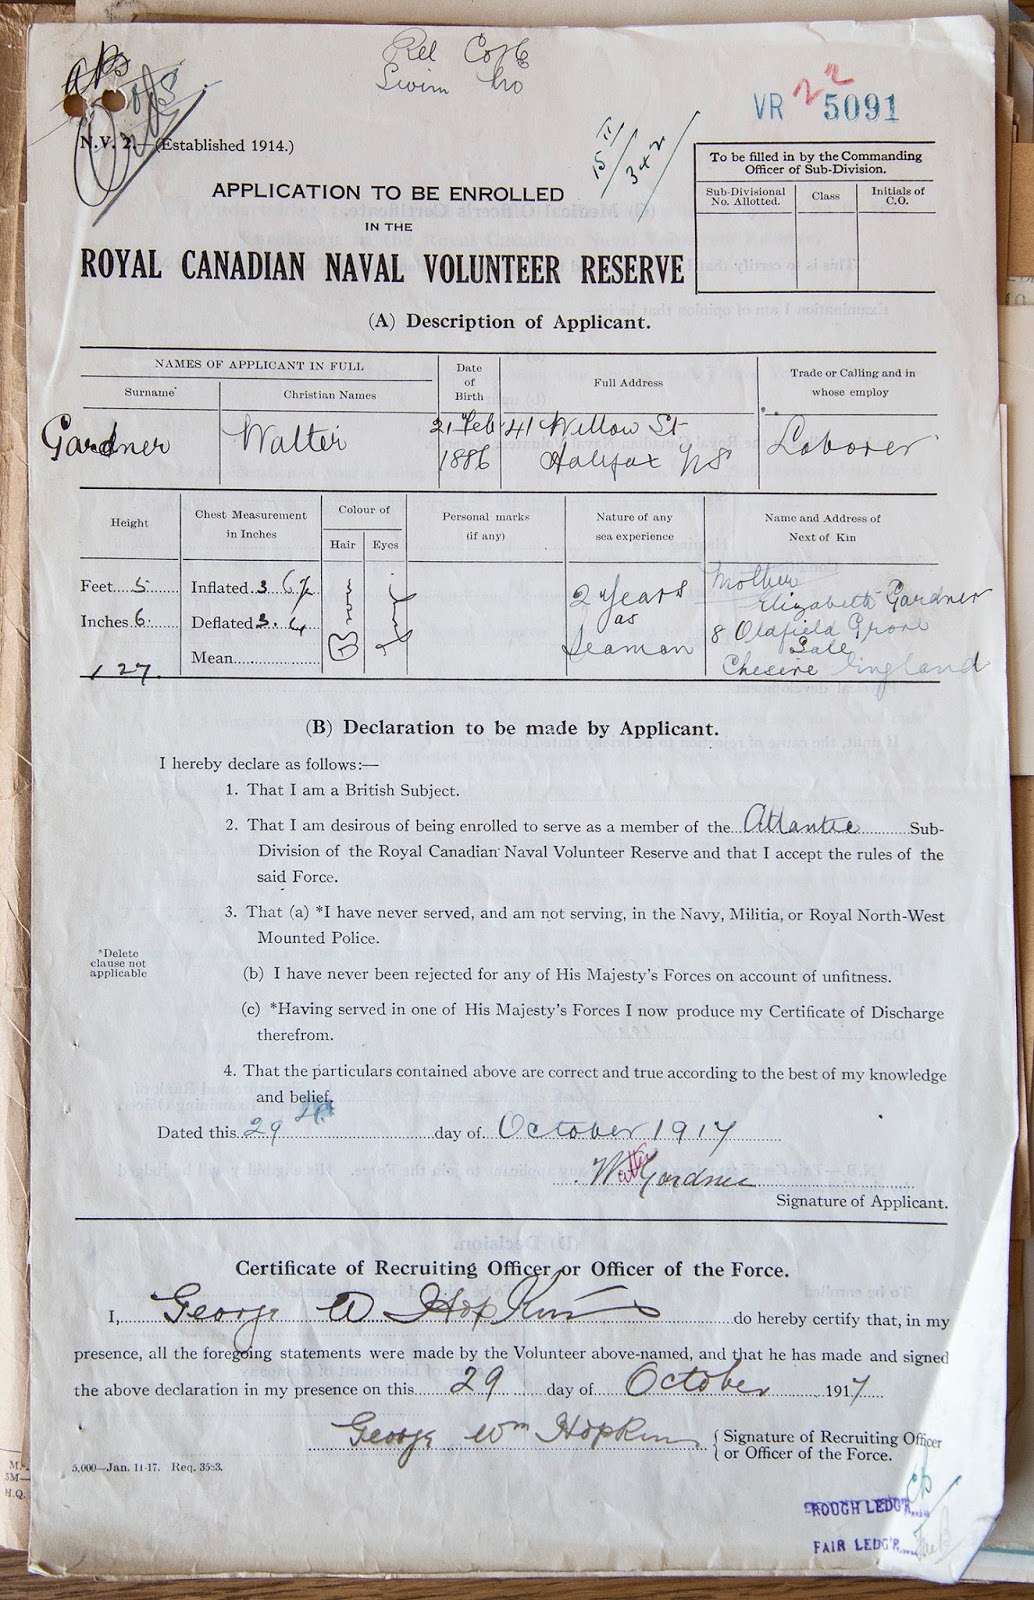 Swim No
VR 22 5091
N.V. 2.—(Established 1914.)
APPLICATION TO BE ENROLLED
IN THE
ROYAL CANADIAN NAVAL VOLUNTEER RESERVE
To be filled in by the Commanding
Officer of Sub-Division.
Sub-Divisional
No. Allotted.
Class
Initials of
C.O.
(A) Description of Applicant.
NAMES OF APPLICANT IN FULL
Surname
Christian Names
Date
of
Birth
Full Address
Trade or Calling and in
whose employ
Gardner
Walter
21 Feb
1886
41 Willow St
Halifax NS
Laborer
Height
Chest Measurement
in Inches
Colour of
Hair
Eyes
Personal marks
(if any)
Nature of any
sea experience
Name and Address of
Next of Kin
Feet 5
Inches 6
127
Inflated 36½
Deflated 34
Mean
2 years
as
Seaman
Mother
Elizabeth Gardner
8 Oldfield Grove
Sale
Chesire England
(B) Declaration to be made by Applicant.
I hereby declare as follows:—
1. That I am a British Subject.
2. That I am desirous of being enrolled to serve as a member of the Atlantic Sub-
Division of the Royal Canadian Naval Volunteer Reserve and that I accept the rules of the
said Force.
3. That (a) *I have never served, and am not serving, in the Navy, Militia, or Royal North-West
Mounted Police.
*Delete
clause not
applicable
(b) I have never been rejected for any of His Majesty's Forces on account of unfitness.
(c) *Having served in one of His Majesty's Forces I now produce my Certificate of Discharge
therefrom.
4. That the particulars contained above are correct and true according to the best of my knowledge
and belief.
Dated this 29th day of October 1917
W Gardner
Signature of Applicant.
Certificate of Recruiting Officer or Officer of the Force.
I, George W Hopkins do hereby certify that, in my
presence, all the foregoing statements were made by the Volunteer above-named, and that he has made and signed
the above declaration in my presence on this 29 day of October 1917
George Wm Hopkins
Signature of Recruiting Officer
or Officer of the Force.
5,000—Jan. 11-17. Req. 3583.
ROUGH LEDG'R
FAIR LEDG'R